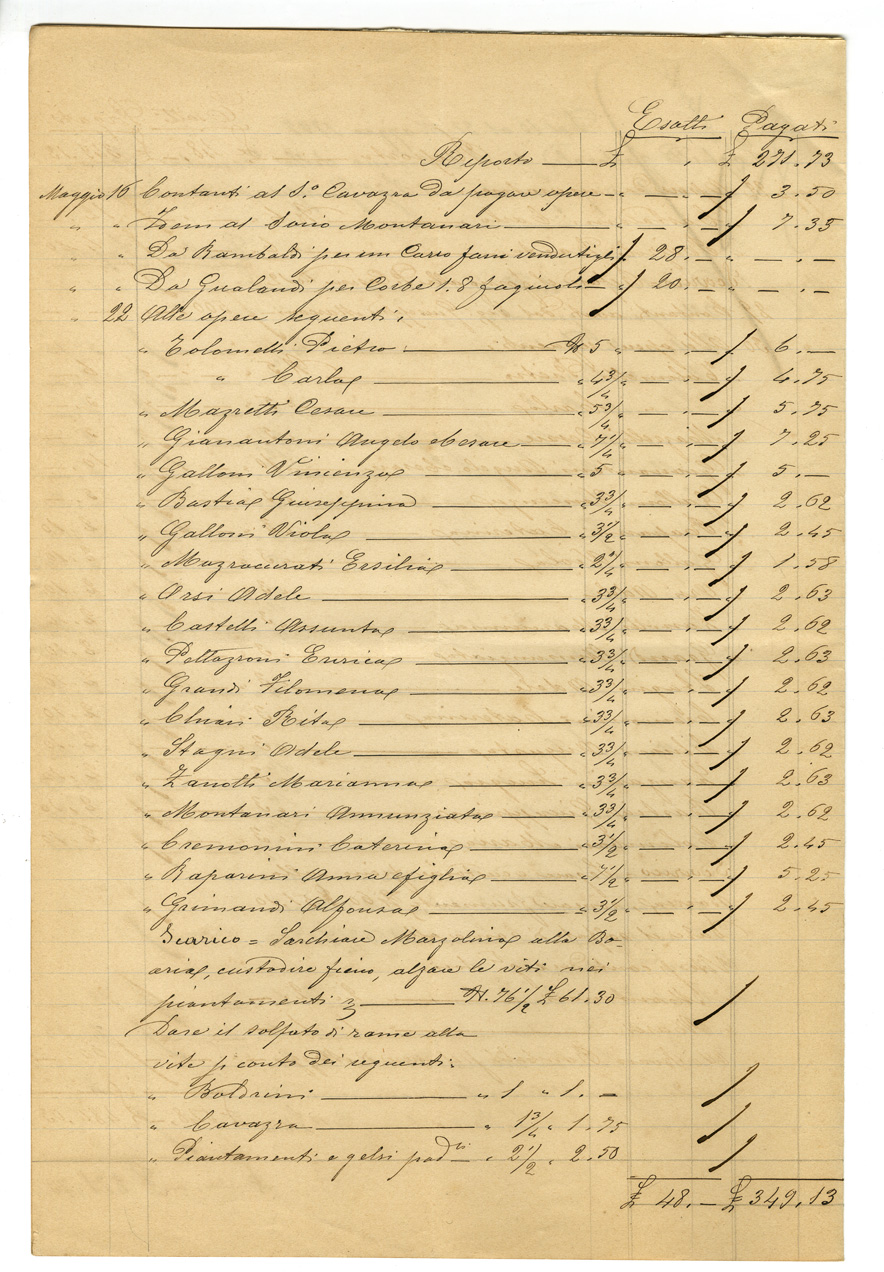 Esatti Pagati
Riporto — £ . £ 271.73
Maggio 16 Contanti al S.º Cavazza da pagare opere — " — . — " 3.50
" " Idem al Socio Montanari — " — . — " 7.35
" " Da Rambaldi per un Carro fani vendutigli " 28. — " — . —
" " Da Gualandi per Corbe 1.8 fagiuoli — " 20. — " — . —
" 22 Alle opere seguenti:
" Tolomelli Pietro — N. 5 " — . — " 6. —
" " Carlo — " 4 3/4 " — . — " 4.75
" Mazzetti Cesare — " 5 3/4 " — . — " 5.75
" Gianantoni Angelo Cesare — " 7 1/4 " — . — " 7.25
" Galloni Vincenzo — " 5 " — . — " 5. —
" Bastia Giuseppina — " 3 3/4 " — . — " 2.62
" Galloni Viola — " 3 1/2 " — . — " 2.45
" Mazzacurati Ersilia — " 2 1/4 " — . — " 1.58
" Orsi Adele — " 3 3/4 " — . — " 2.63
" Castelli Assunta — " 3 3/4 " — . — " 2.62
" Pettazzoni Enrica — " 3 3/4 " — . — " 2.63
" Grandi Filomena — " 3 3/4 " — . — " 2.62
" Chiari Rita — " 3 3/4 " — . — " 2.63
" Stagni Adele — " 3 3/4 " — . — " 2.62
" Zanotti Marianna — " 3 3/4 " — . — " 2.63
" Montanari Annunziata — " 3 3/4 " — . — " 2.62
" Cremonini Caterina — " 3 1/2 " — . — " 2.45
" Raparini Anna e figlia — " 7 1/2 " — . — " 5.25
" Grimandi Alfonsa — " 3 1/2 " — . — " 2.45
Scarico = Sarchiare Marzolina alla Bo-
aria, custodire fieno, alzare le viti nei
piantamenti — N. 76 1/2 £ 61.30
Dare il solfato di rame alla
vite p conto dei seguenti:
" Boldrini — " 1 " 1. —
" Cavazza — " 1 3/4 " 1.75
" Piantamenti e gelsi pad.li — " 2 1/2 " 2.50
£ 48. — £ 349.13